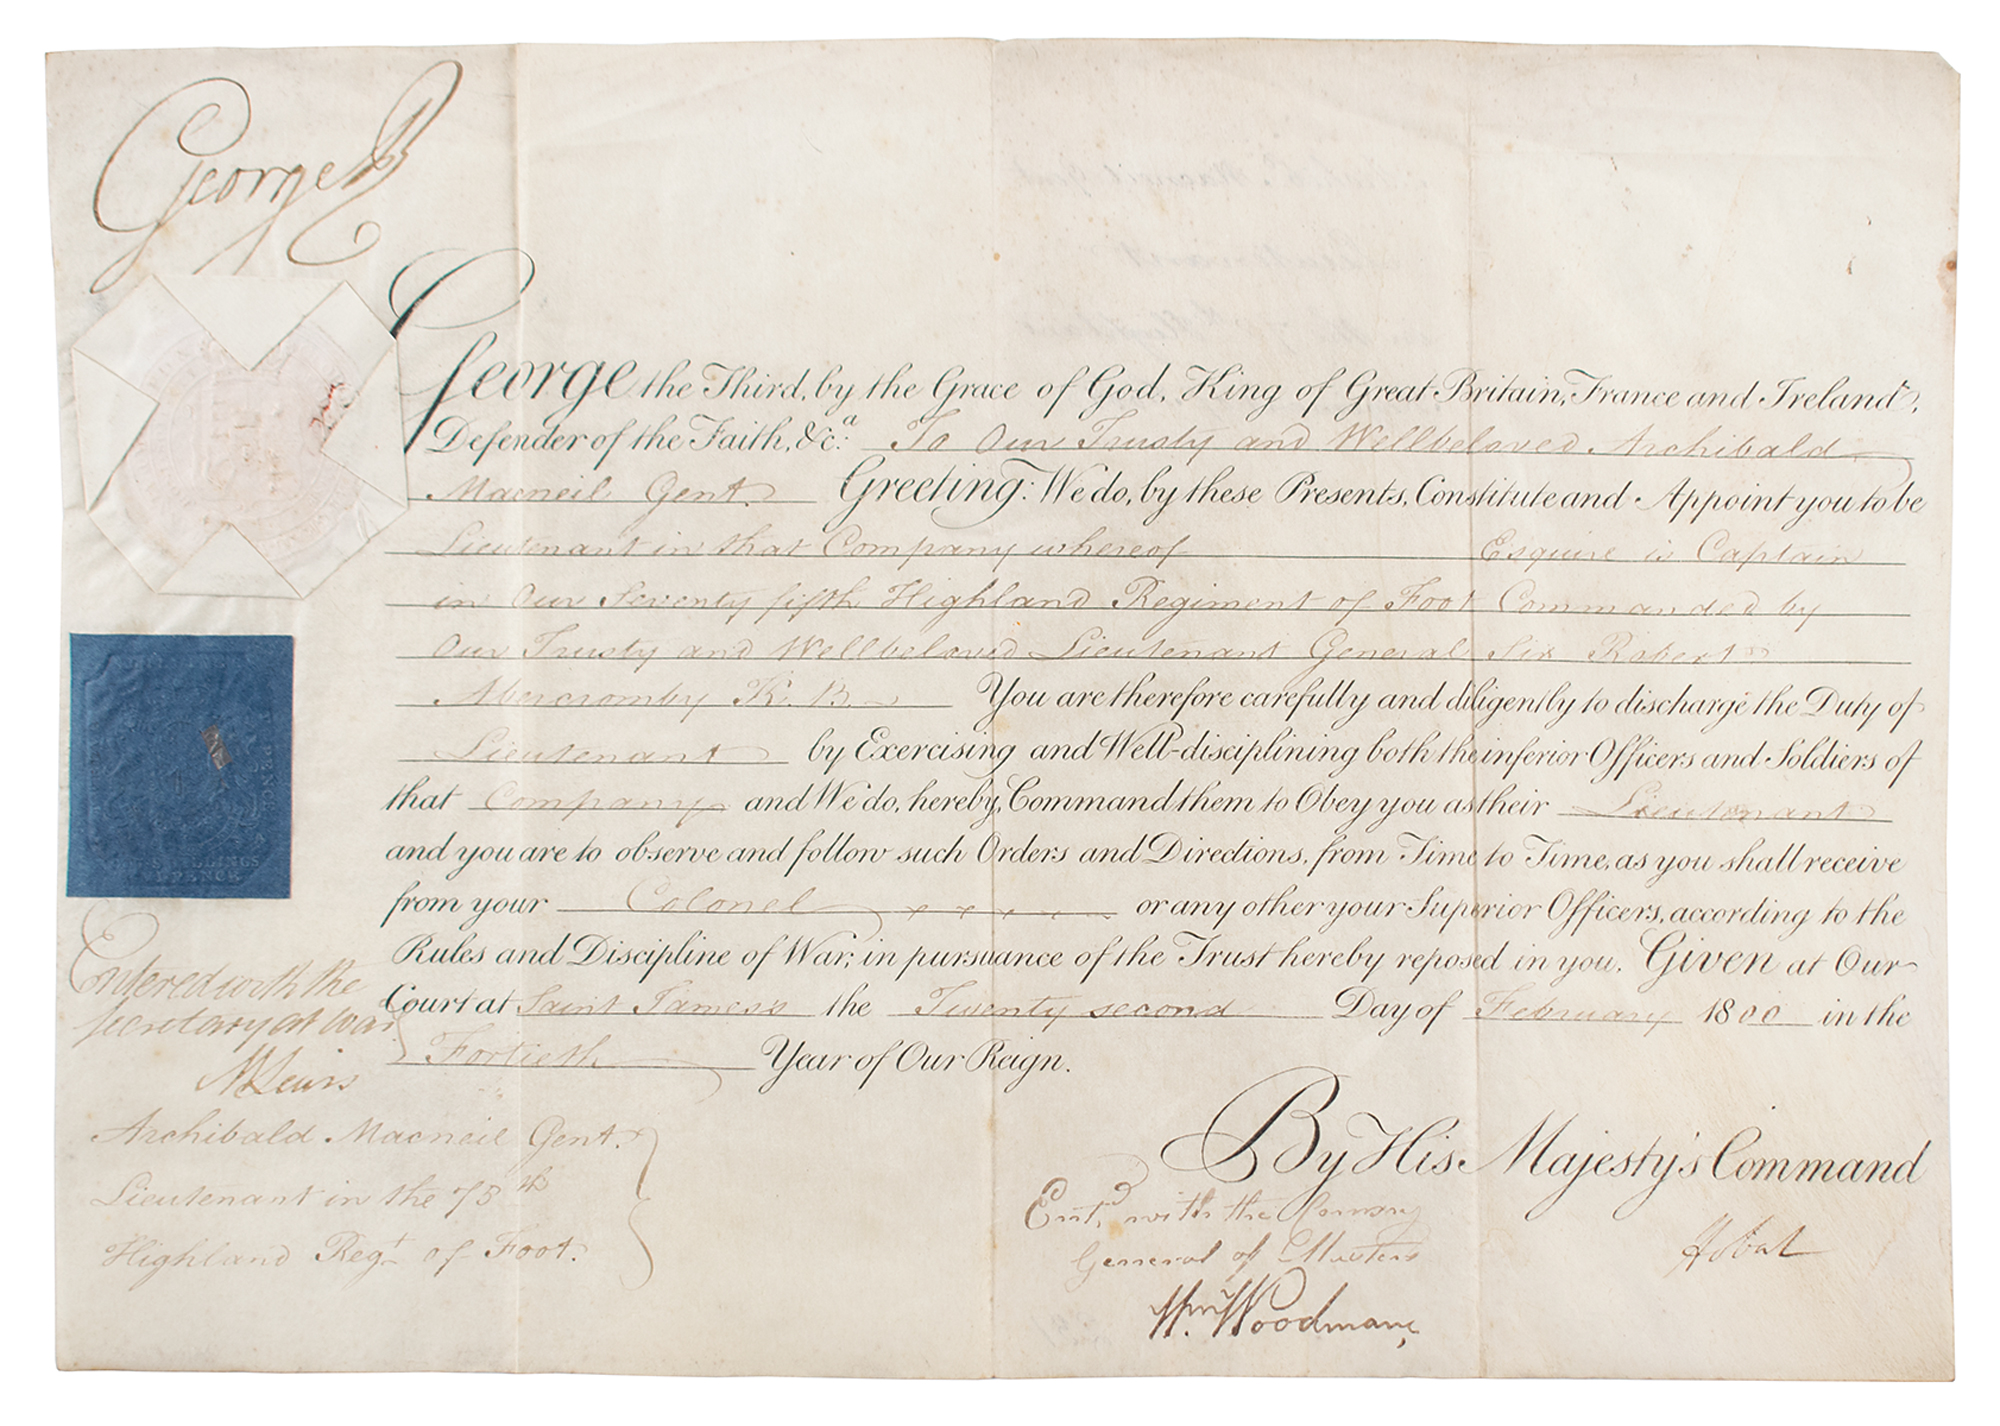 George R
George the Third, by the Grace of God, King of Great Britain, France and Ireland,
Defender of the Faith, &c.a To Our Trusty and Wellbeloved Archibald
Macneil Gent. Greeting: We do, by these Presents, Constitute and Appoint you to be
Lieutenant in that Company whereof Esquire is Captain
in Our Seventy fifth Highland Regiment of Foot Commanded by
Our Trusty and Wellbeloved Lieutenant General Sir Robert
Abercromby K. B. You are therefore carefully and diligently to discharge the Duty of
Lieutenant by Exercising and Well-disciplining both the inferior Officers and Soldiers of
that Company and We do, hereby, Command them to Obey you as their Lieutenant
and you are to observe and follow such Orders and Directions, from Time to Time, as you shall receive
from your Colonel x x x x or any other your Superior Officers, according to the
Rules and Discipline of War, in pursuance of the Trust hereby reposed in you. Given at Our
Court at Saint James's the Twenty second Day of February 1800 in the
Fortieth Year of Our Reign.
By His Majesty's Command
Entered with the
Secretary at War
M Lewis
Archibald Macneil Gent.
Lieutenant in the 75th
Highland Regt of Foot.
Entd with the
General of Musters
Wm Woodman